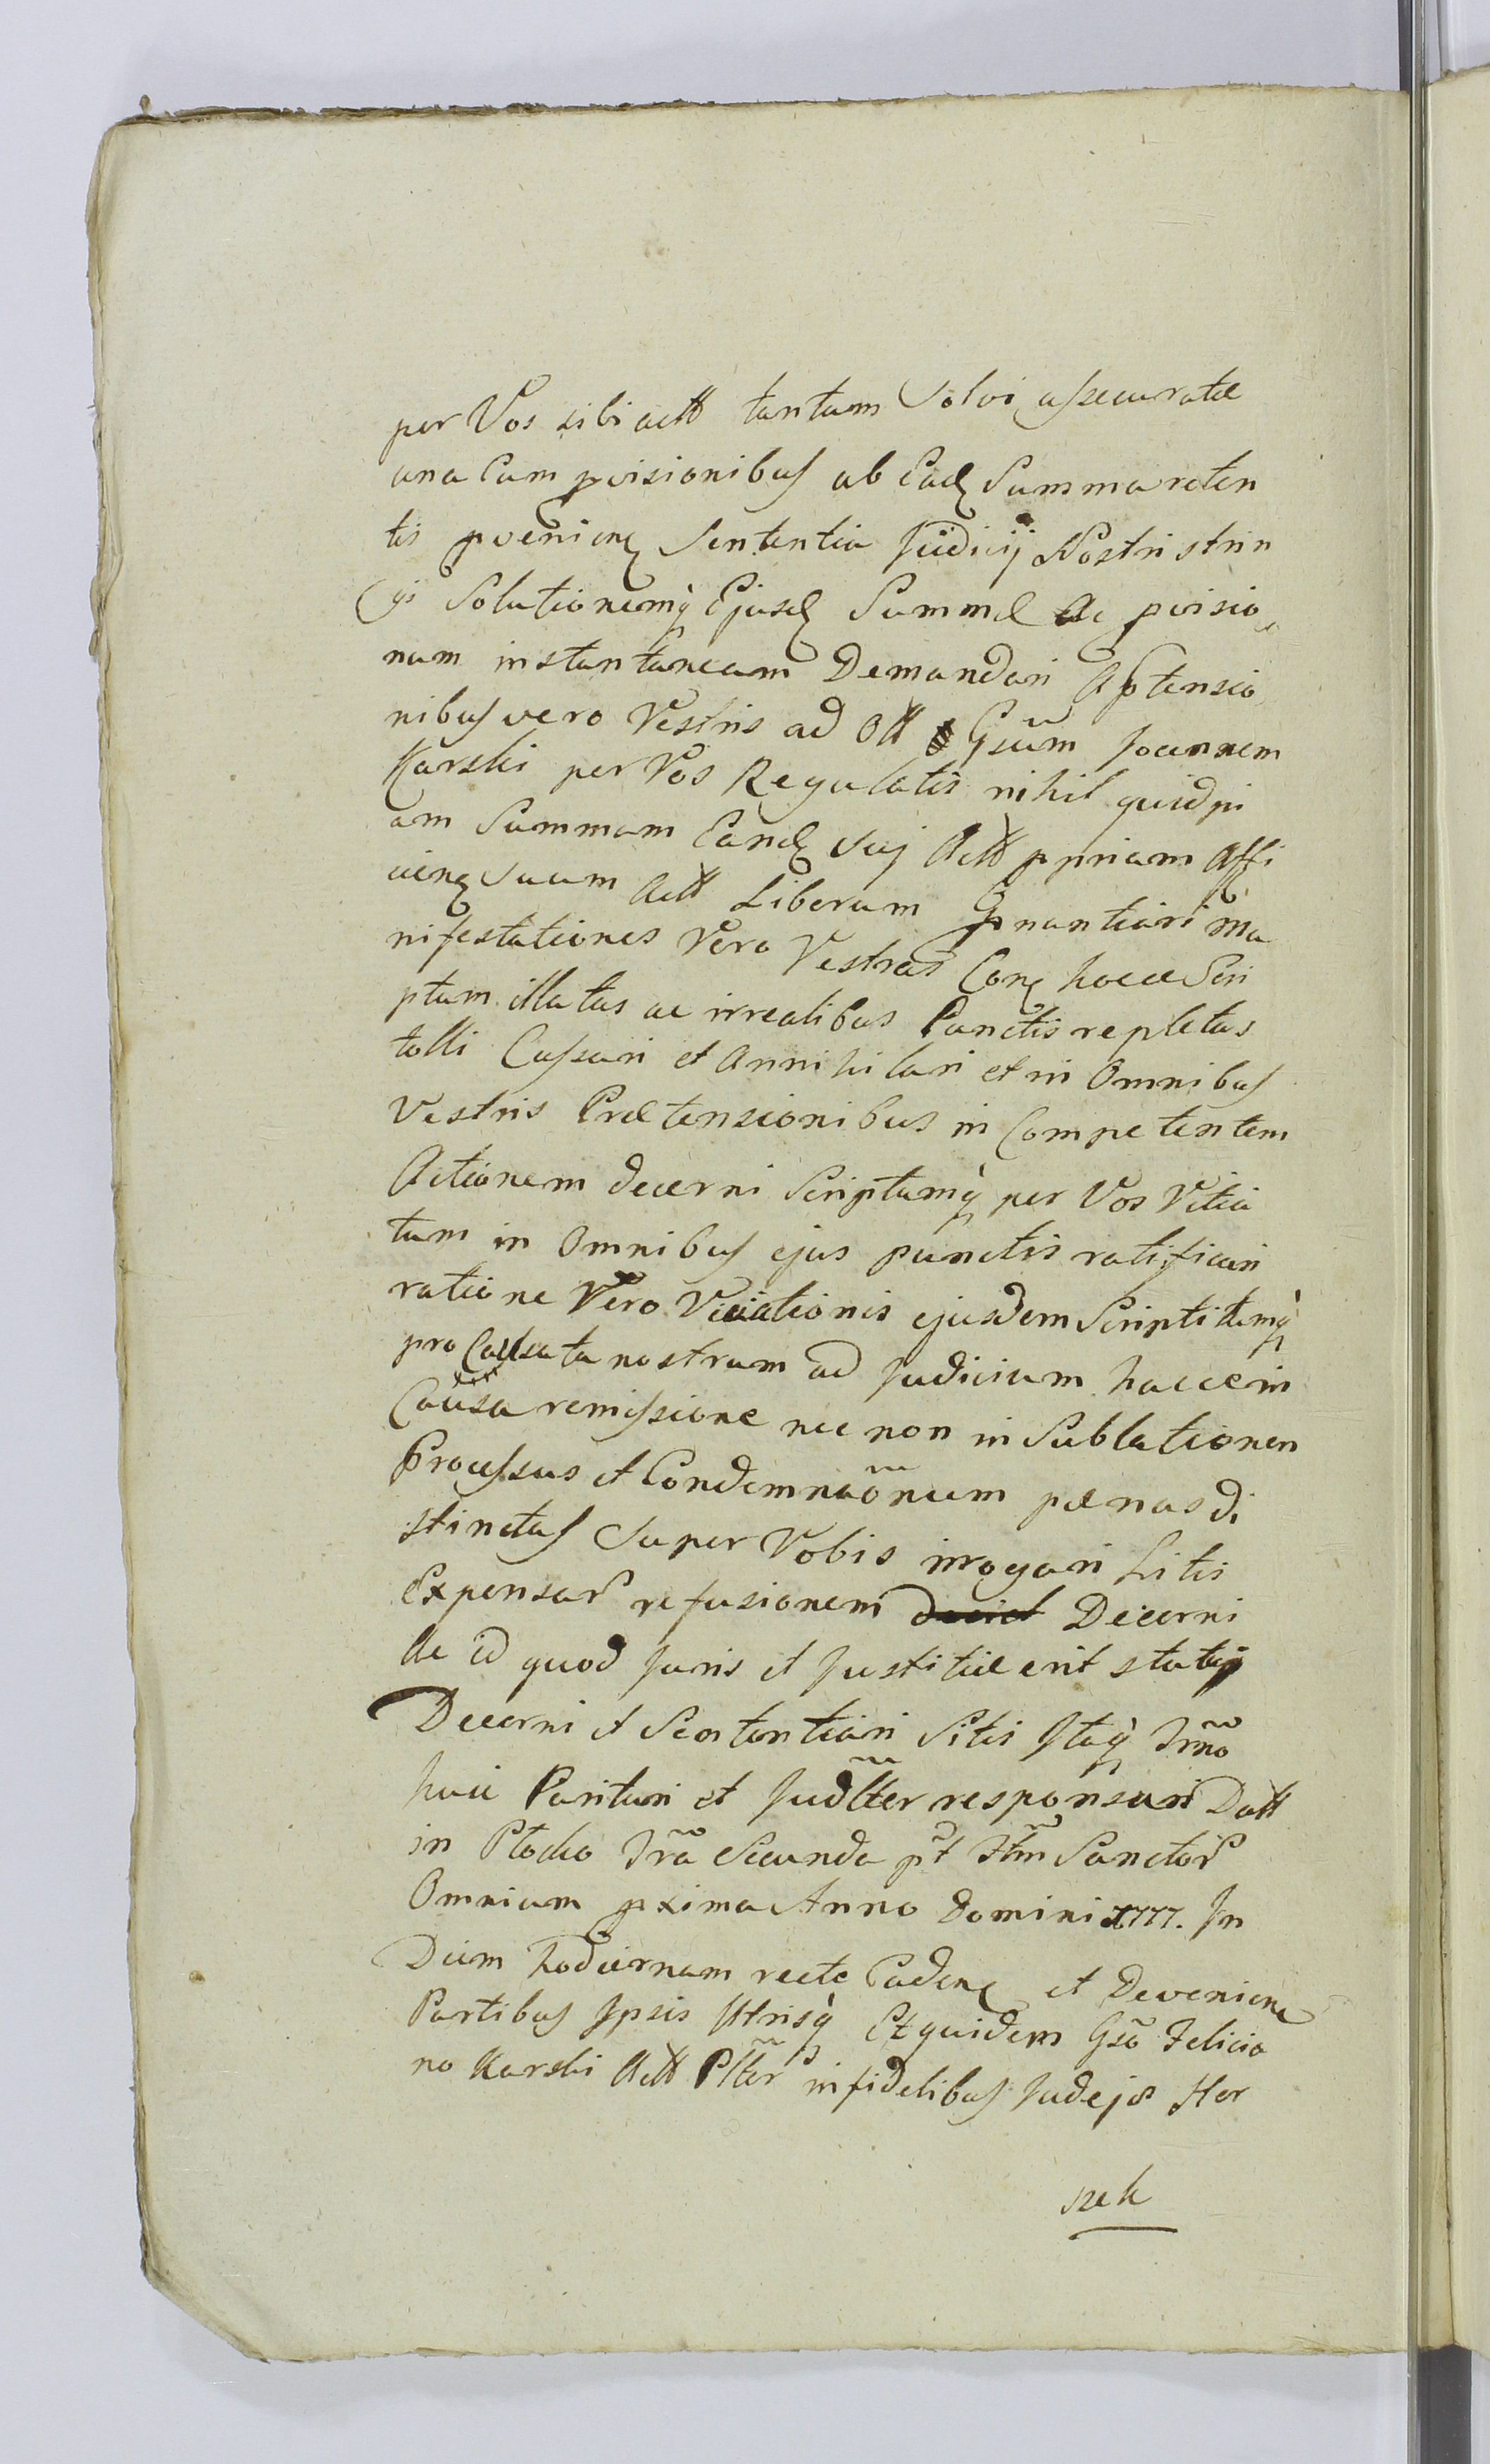 per Vos sibi actt tantum Solvi assecuratæ
una Cum pvisionibus ab Eadę Summa reten
tis pvenienę Sententia Judicij Nostri strin
gi Solutionemq̀ Ejusdę Summæ Ac pvisio
num instantaneam Demandari Aptensio
nibus vero Vestris ad Ott Gsũm Joannem
Karski per Vos Regulatis nihil quidpi
am Summam Eandę suj Actt ppriam Affi
cienę suum Actt Liberum Pnuntiari Ma
nifestationes Vero Vestras Conę hocce Scri
ptum illatas ac irrealibus Punctis repletas
tolli Cassari et Annihilari et in Omnibus
Vestris Prætensionibus in Competentem
Actionem decerni Scriptumq̀ per Vos Vitia
tum in Omnibus ejus punctis ratificari
ratione Vero Viciationis ejusdem Scripti tamq̀
pro Causata nostrum ad Judicium hacce in
Causa remissione nec non in Sublationen
Processus et Condemnaõnum pænas di
stinctas Super Vobis irrogari Litis
Expensar refusionem Decerni
Ac id quod Juris et Justitiæ erit statuj
Decerni et Sententiari Sitis Itaq̀ Trño
huic Parituri et Judllter responsuri Datt
in Płocko Frã Secunda pt Ftm Sanctor
Omnium pxima Anno Domini 1777. In
Diem hodiernam recte Cadenę et Devenienę
Partibus Ipsis Utrisq̀ Et quidem Gsõ Felicia
no Karski Actt Plter infidelibus Judejs Her
szek